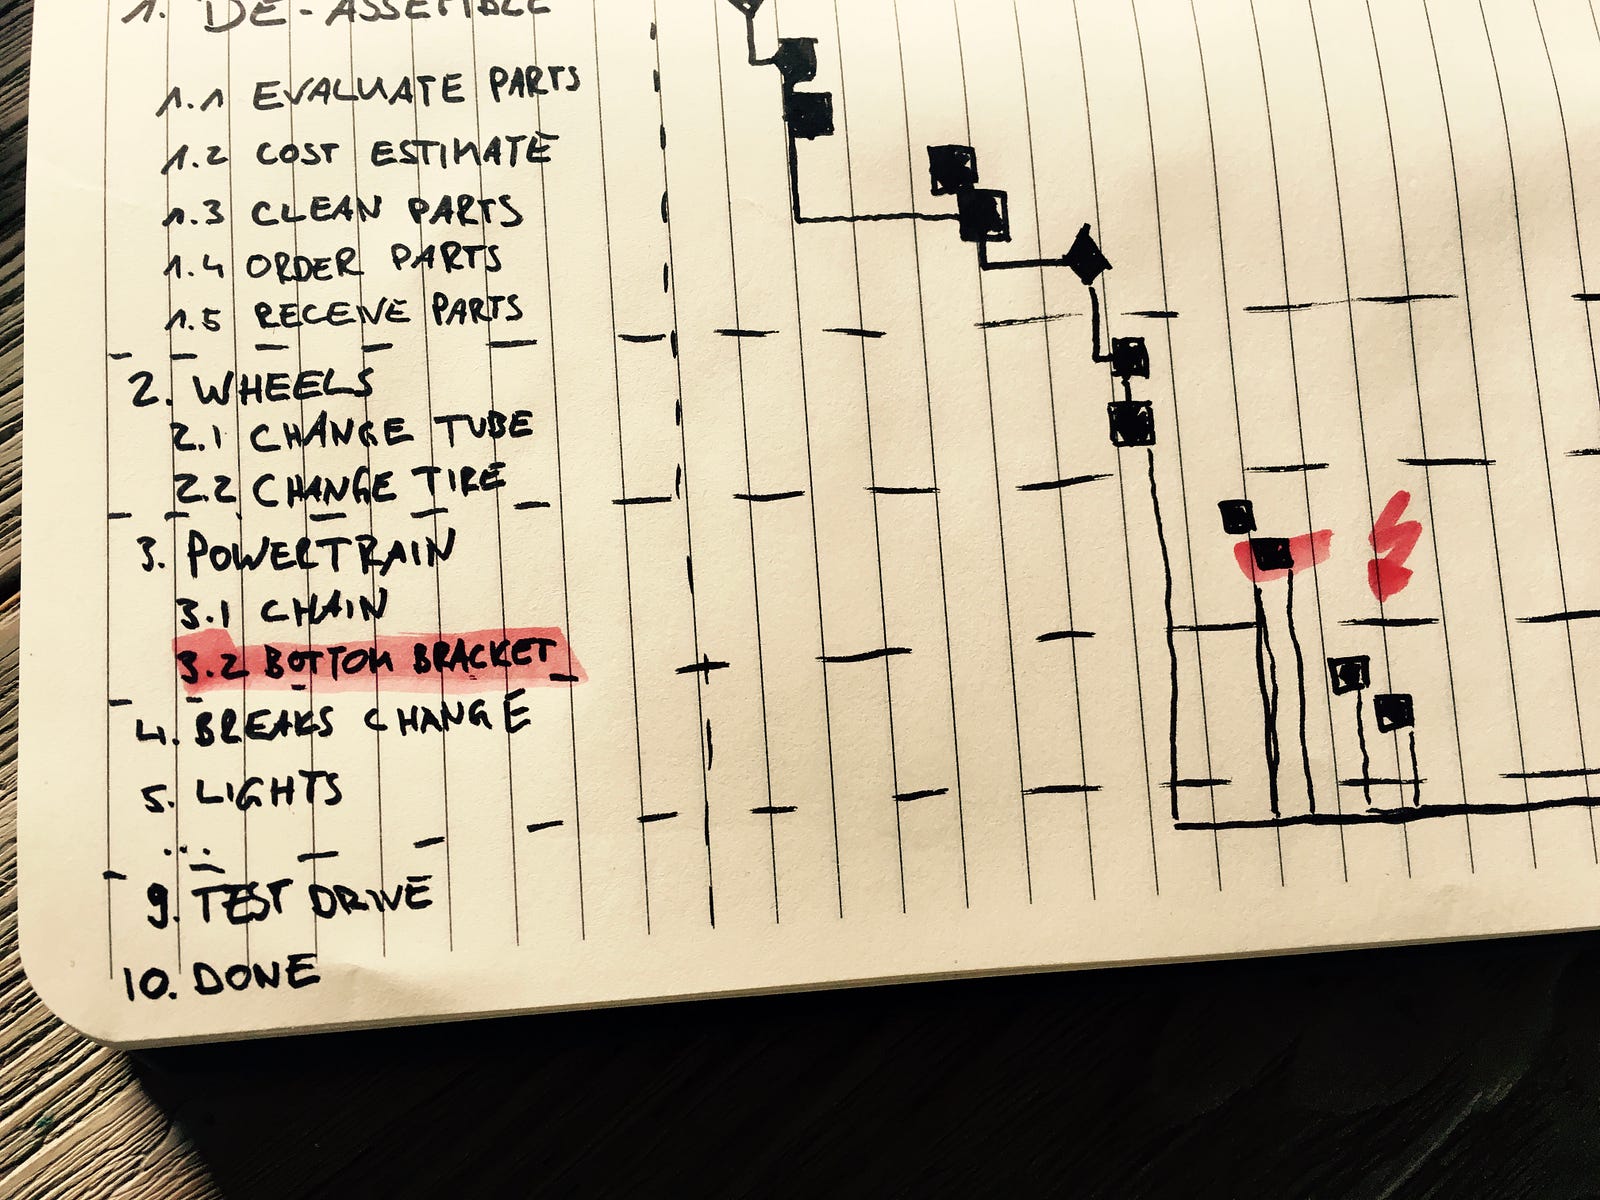 1. DE-ASSEMBLE
1.1 EVALUATE PARTS
1.2 COST ESTIMATE
1.3 CLEAN PARTS
1.4 ORDER PARTS
1.5 RECEIVE PARTS
2. WHEELS
2.1 CHANGE TUBE
2.2 CHANGE TIRE
3. POWERTRAIN
3.1 CHAIN
3.2 BOTTOM BRACKET
4. BREAKS CHANGE
5. LIGHTS
...
9. TEST DRIVE
10. DONE